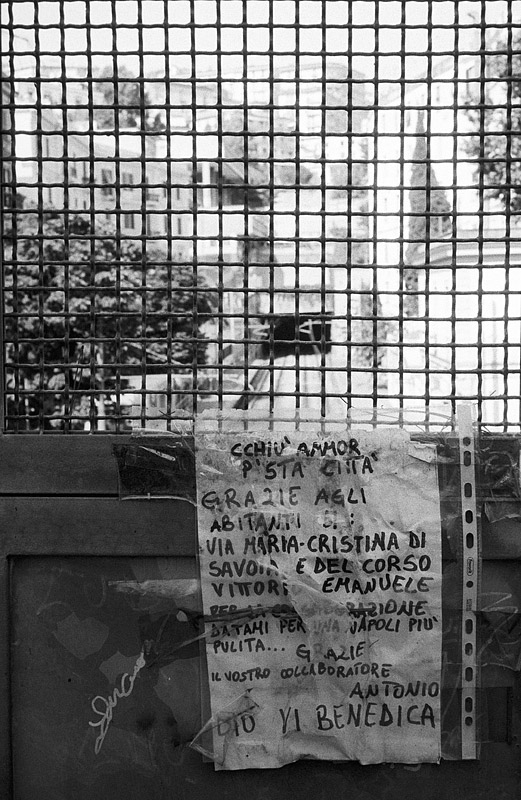 CCHIU' AMMOR
P'STA CITTA'
GRAZIE AGLI
ABITANTI DI:
VIA MARIA-CRISTINA DI
SAVOIA E DEL CORSO
VITTORI EMANUELE
PER LA COLLABORAZIONE
DATAMI PER UNA NAPOLI PIU'
PULITA... GRAZIE
IL VOSTRO COLLABORATORE
ANTONIO
DIO VI BENEDICA